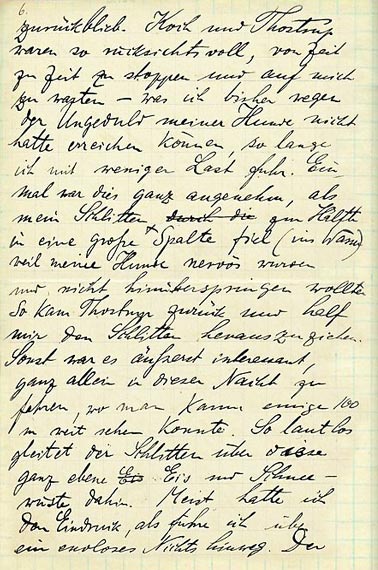 6.
zurückblieb. Koch und Thostrup
waren so rücksichtsvoll, von Zeit
zu Zeit zu stoppen und auf mich
zu warten – was ich bisher wegen
der Ungeduld meiner Hunde nicht
hatte erreichen können, so lange
ich mit weniger Last fuhr. Ein-
mal war dies ganz angenehm, als
mein Schlitten durch die zur Hälfte
in eine große Spalte fiel (ins Wasser)
weil meine Hunde nervös wurden
und nicht hinüberspringen wollten.
So kam Thostrup zurück und half
mir den Schlitten herauszuziehen.
Sonst war es äußerst interessant,
ganz allein in dieser Nacht zu
fahren, wo man kaum einige 100
m weit sehen konnte. So lautlos
gleitet der Schlitten über diese
ganz ebene Eis Eis und Schnee-
wüste dahin. Meist hatte ich
den Eindruck, als führe ich über
ein endloses Nichts hinweg. Der